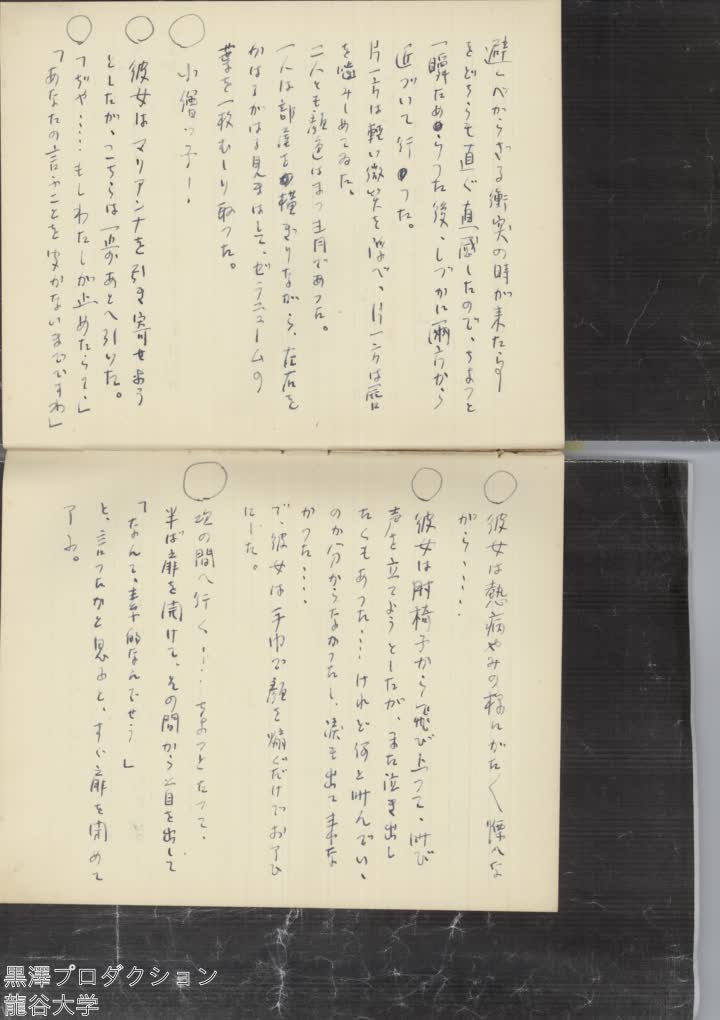 避くべからざる衝突の時が来たらず
をどちらも直ぐ直感したので、ちよつと
一瞬ためらつた後、しづかに両方から
近づいて行つた。
片一方は軽い微笑を浮べ、片一方は唇
を噛みしめてゐた。
二人とも顔色はまつ青であつた。
一人は部屋を横ぎりながら、左右を
かはるがはる見まはして、ぜラニュームの
葉を一枚むしり取つた。
○
小僧つ子！
○
彼女はマリアンナを引き寄せよう
としたが、こちらは一足あとへ引いた。
○
「ぢや‥‥もしわたしが止めたら？」
「あなたの言ふことを聞かないまでですわ」
○
彼女は熱病やみの様にがたく慄へな
がら‥‥
○
彼女は肘椅子から飛び上つて、叫び
声を立てようとしたが、また泣き出し
たくもあつた‥‥けれど何と叫んでいゝ
のか分からなかつたし、涙も出て来な
かつた‥‥
で、彼女は手巾で顔を煽ぐだけでおアひ
にした。
○
次の間へ行く‥‥ちよつとたつて、
半ば扉を開けて、その間から首を出して
「なんて、素的なんでせう」
と、言つたかと思ふと、すぐ扉を閉めて
了ふ。
黒澤プロダクション
龍谷大学